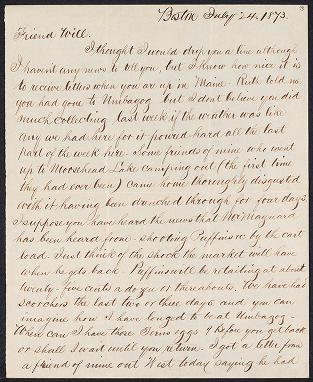 3
Boston July 24. 1873.
Friend Will.
I thought I would drop you a line although
I haven't any news to tell you, but I know how nice it is
to recieve letters when you are up in Maine. Ruth told me
you had gone to Umbagog but I dont believe you did
much collecting last week if the weather was like
any we had here for it poured hard all the last
part of the week here. Some friends of mine who went
up to Moosehead Lake camping out (the first time
they had ever been) came home thoroughly disgusted
with it having been drenched through for four days.
I suppose you have heard the news that Mr Maynard
has been heard from - shooting Puffins &c by the cart
load. Just think of the shock the market will have
when he gets back. Puffins will be retailing at about
twenty-five cents a dozen or thereabouts. We have had
scorchers the last two or three days and you can
imagine how I have longed to be at Umbagog -
When can I have those Terns eggs? before you get back
or shall I wait until you return. I got a letter from
a friend of mine out West today saying he had